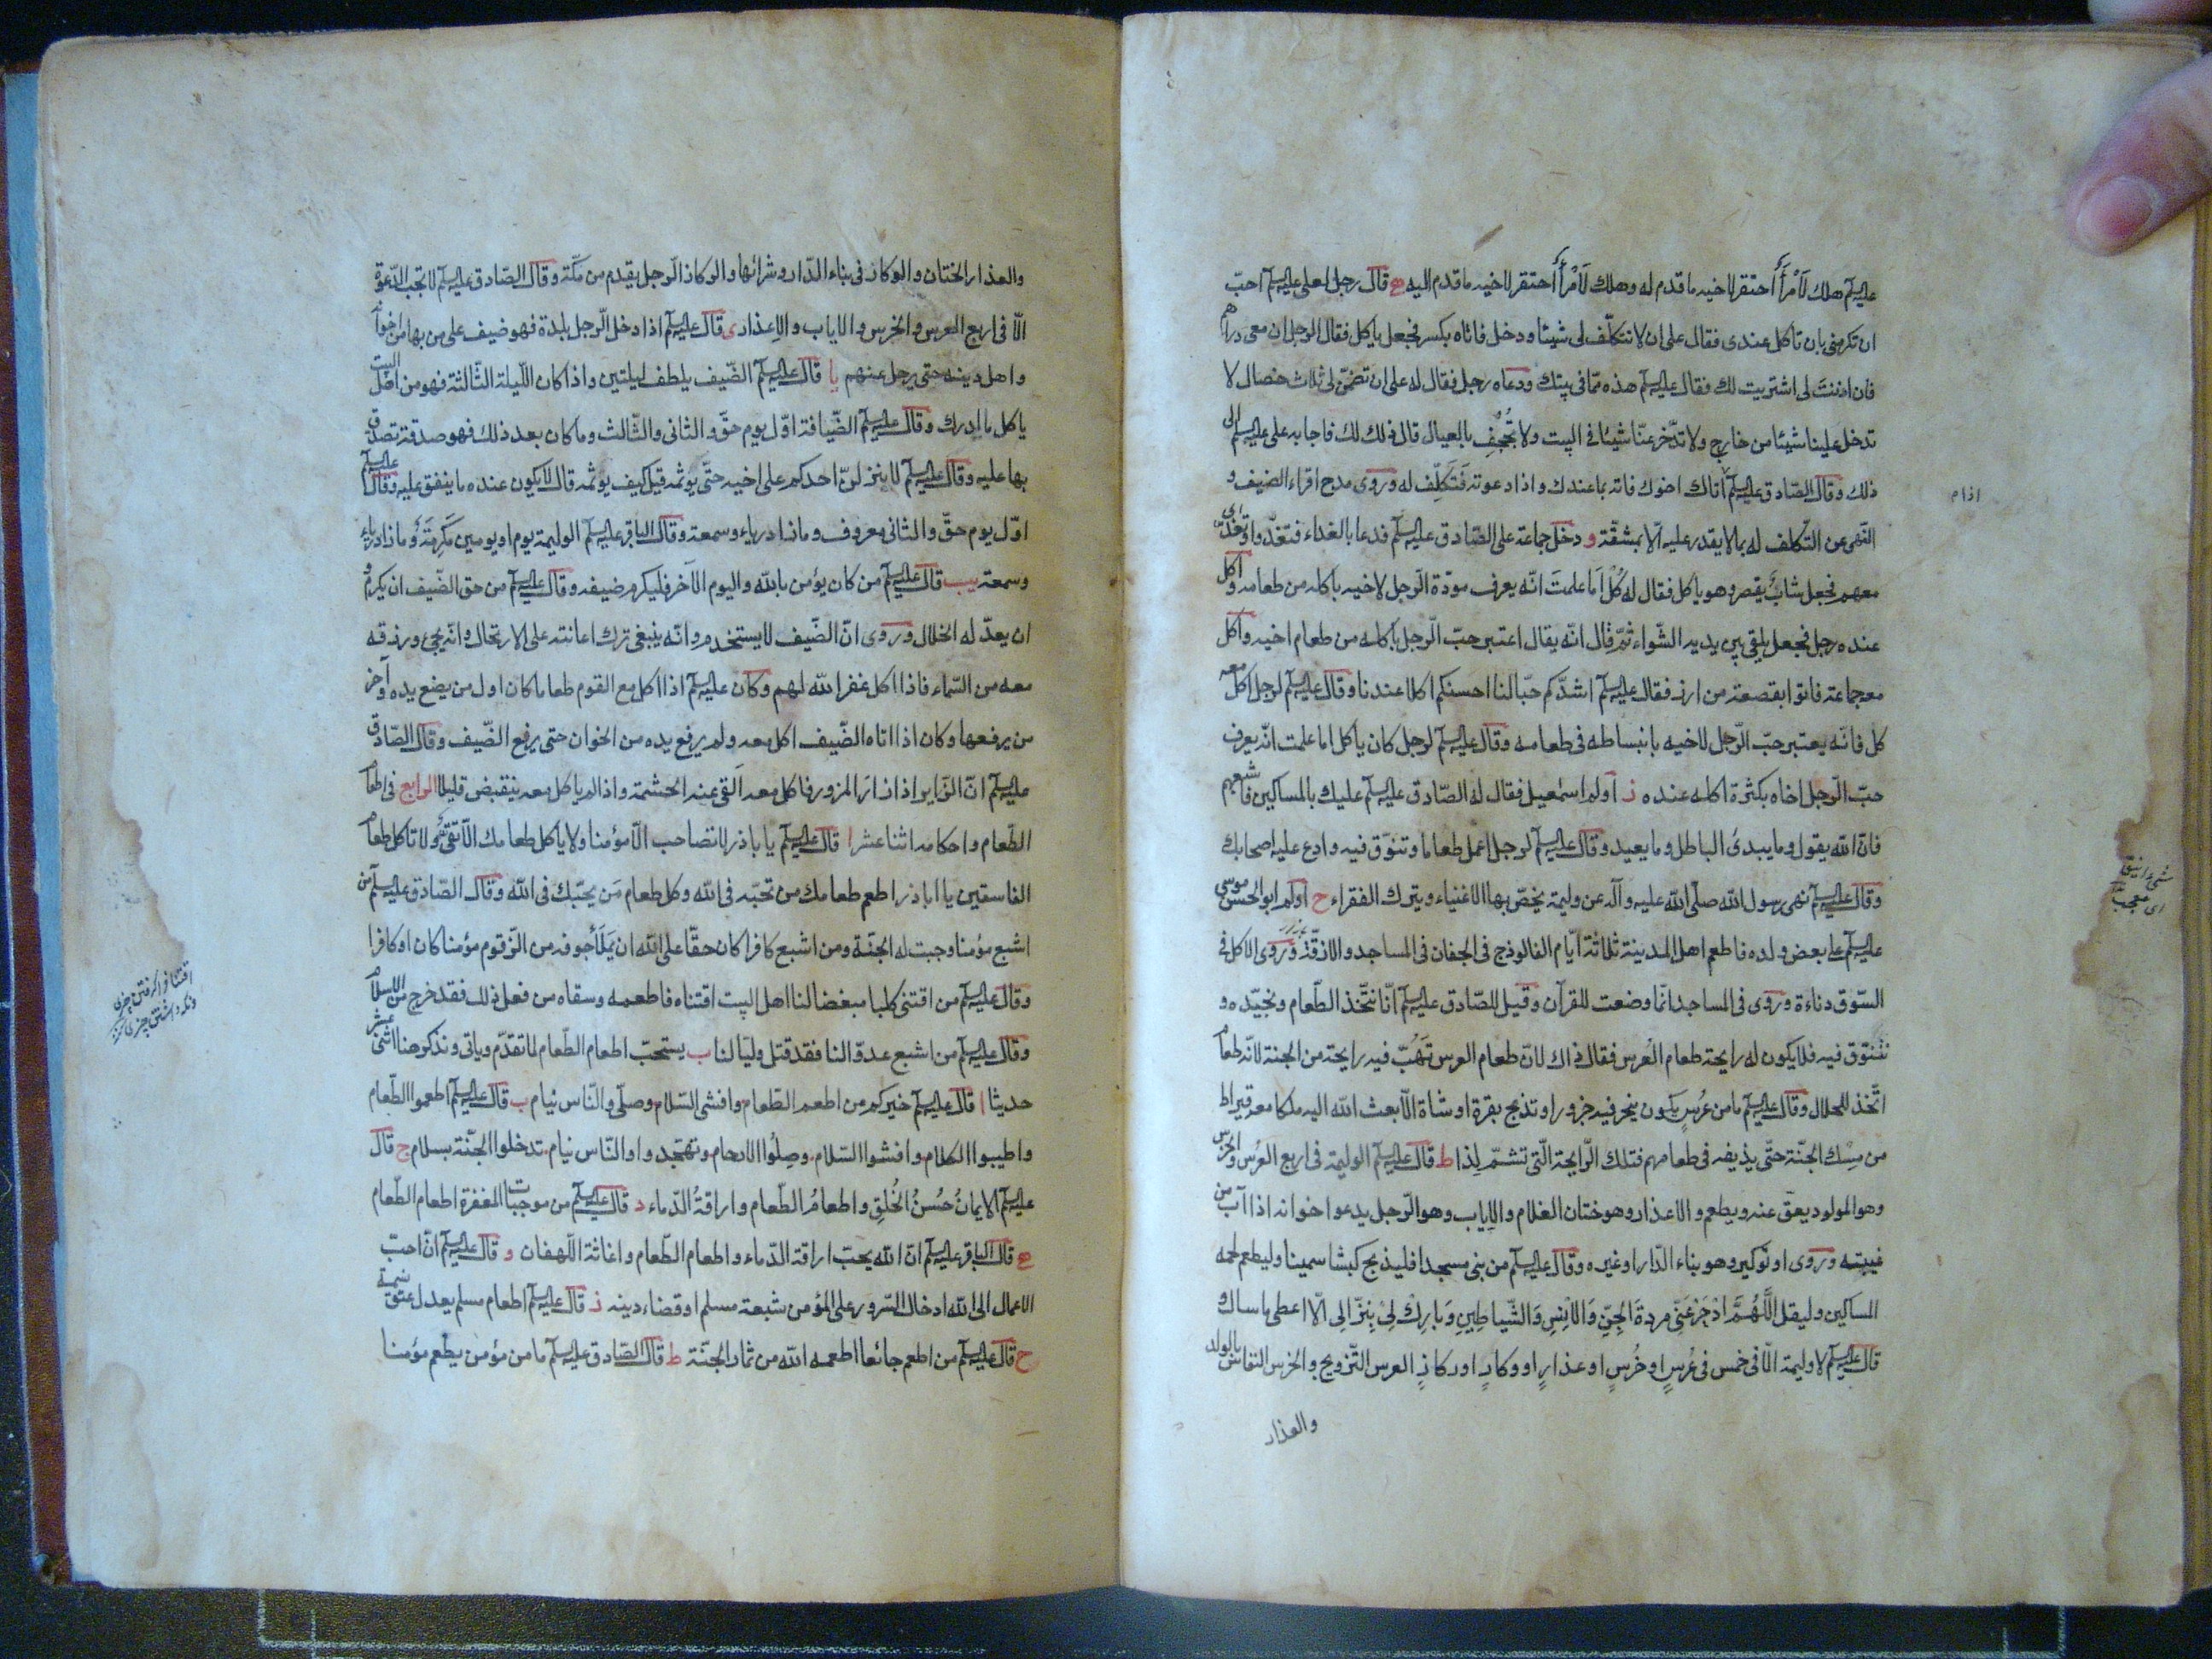 عليه السلم هلك لامرأ احتقر لاخيه ما قدم له وهلك لامرأ احتقر لاخيه ما قدم اليه ه قال رجل لعلى عليه السلم احبّ
ان تكرمنى بان تاكل عندى فقال على ان لا تتكلّف لى شيئا ودخل فاتاه بكسر فجعل ياكل فقال الرجل ان معى دراهم
فان اذنت لى اشتريت لك فقال عليه السلم هذه ممّا فى بيتك ودعاه رجل فقال له على ان تضمن لى ثلاث خصال لا
تدخل علينا شيئا من خارج ولا تدّخر عنّا شيئا فى البيت ولا تُجْحِف بالعيال قال ذلك لك فاجابه على عليه السلم الى
ذلك وقال الصّادق عليه السلم اتاك اخوك فاته بما عندك واذا دعوته فَتَكَلّف له وروى مدح اقراء الضيف و
النّهى عن التكلف له بما لا يقدر عليه الّا بمشقّة و دخل جماعة على الصّادق عليه السلم فدعا بالغداء فتغدّوا وتغدّى
معهم فجعل شابّ يقصر وهو ياكل فقال له كُلْ اَما علمتَ انّه يعرف مودّة الّرجل لاخيه باكله من طعامه واكل
عنده رجل فجعل يلقى بين يديه الشّواء ثمّ قال انّه يقال اعتبر حبّ الّرجل باكله من طعام اخيه واكل
معه جماعة فاتوا بقصعة من ارز فقال عليه السلم اشدّكم حبّا لنا احسنكم اكلا عندنا وقال عليه السلم لرجل اكل معه
كل فانّه يعتبر حبّ الّرجل لاخيه بانبساطه فى طعامه وقال عليه السلم لرجل كان ياكل اما علمت انّه يعرف
حبّ الّرجل اخاه بكثرة اكله عنده ز اولم اسمعيل فقال له الصّادق عليه السلم عليك بالمساكين فاشبعهم
فانّ الله يقول وما يبدئ الباطل وما يعيد وقال عليه السلم لرجل اعمل طعاما وتنوّق فيه وادع عليه اصحابك
وقال عليه السلم نهى رسول الله صلّى الله عليه وآله عن وليمة يخصّ بها الاغنياء ويترك الفقراء ح اولم ابو الحسن موسى
عليه السلم على بعض ولده فاطعم اهل المدينة ثلاثة ايّام الفالوذج فى الجفان فى المساجد والازقّة وروى الاكل فى
السّوق دناءة وروى فى المساجد انّما وضعت للقرآن وقيل للصّادق عليه السلم انّا نتّخذ الطّعام ونجيّده و
نتنوّق فيه فلا يكون له رايحة طعام العُرس فقال ذاك لانّ طعام العرس تَهُبّ فيه رايحة من الجنة لانّه طعام
اتّخذ للحلال وقال عليه السلم ما من عُرس يكون ينحر فيه جزورا وتذبح بقرة او شاة الّا بعث الله اليه ملكا معه قيراط
من مِسْك الجنّة حتّى يذيفه فى طعامهم فتلك الّرايحة الّتى تشمّ لِذا ط قال عليه السلم الوليمة فى اربع العُرس والخرس
وهو المولود يعقّ عنه ويطعم والاعذار وهو ختان الغلام والاياب وهو الّرجل يدعو اخوانه اذا آب من
غيبته وروى او توكير وهو بناء الدّار او غيره وقال عليه السلم من بنى مسجدا فليذبح كبشا سمينا وليطعم لحمه
المساكين وليقل اللَّهُمَّ ادْحَرْ عَنّى مردةَ الجِنّ وَالاِنْسِ وَالشّياطِينِ وَبارِكْ لِىْ بِنزّالى الّا اعطى ما سال و
قال عليه السلم لا وليمة الّا فى خمس فى عُرسٍ او خُرسٍ او عذارٍ او وكارٍ او ركازٍ العرس التّزويج والخرس النفاس بالولد
والعذار
اذا م
والعذار الختان والوكار فى بناء الدّار وشرائها والركاز الّرجل يقدم من مكّة وقال الصّادق عليه السلم لا تجب الدّعوة
الّا فى اربع العرس والخرس والاياب والاِعذار ى قال عليه السلم اذا دخل الّرجل بلدة فهو ضيف على من بها من اخوانه
واهل دينه حتى يرحل عنهم يا قال عليه السلم الضّيف يلطف ليلتين واذا كان اللّيلة الثّالثة فهو من اهل البيت
ياكل ما ادرك وقال عليه السلم الضّيافة اوّل يوم حقّ والثانى والثّالث وما كان بعد ذلك فهو صدقة تصدّق
بها عليه وقال عليه السلم لا ينزلنّ احدكم على اخيه حتّى يوثمه قيل كيف يوثمه قال لا يكون عنده ما ينفق عليه وقال عليه السلم
اوّل يوم حقّ والثانى معروف وما زاد رياء وسمعة وقال الباقر عليه السلم الوليمة يوم او يومين مَكرمَة وما زاد رياء
وسمعة يب قال عليه السلم من كان يؤمن بالله واليوم الآخر فليكرم ضيفه وقال عليه السلم من حق الضّيف ان يكرم و
ان يعدّ له الخلال وروى انّ الضّيف لا يستخدم وانّه ينبغى ترك اعانته على الارتحال وانّه يجىء ورزقه
معه من السّماء فاذا اكل غفر الله لهم وكان عليه السلم اذا اكل مع القوم طعاما كان اول من يضع يده وآخر
من يرفعها وكان اذا اتاه الضّيف اكل معه ولم يرفع يده من الخوان حتى يرفع الضّيف وقال الصّادق
عليه السلم انّ الزّاير اذا زار المزور فاكل معه القى عنه الحشمة واذا لم ياكل معه ينقبض قليلا الرابع فى اطعام
الطّعام واحكامه اثنا عشر ا قال عليه السلم يا باذر لا تصاحب الّا مؤمنا ولا ياكل طعامك الّا تقىّ ولا تاكل طعام
الفاسقين يا اباذر اطعم طعامك من تحبّه فى الله وكل طعام مَن يحبّك فى الله وقال الصّادق عليه السلم من
اشبع مؤمنا وجبت له الجنّة ومن اشبع كافرا كان حقّا على الله ان يَمْلَأ جوفه من الزّقوم مؤمنا كان او كافرا
وقال عليه السلم من اقتنى كلبا مبغضا لنا اهل البيت اقتناه فاطعمه وسقاه من فعل ذلك فقد خرج من الاسلام
وقال عليه السلم من اشبع عدوّا لنا فقد قتل وليّا لنا ب يستحبّ اطعام الطّعام لما تقدّم وياتى ونذكر هنا اثنى عشر
حديثا ا قال عليه السلم خيركم من اطعم الطّعام وافشى السّلام وصلّى والنّاس نيام ب قال عليه السلم اطعموا الطّعام
واطيبوا الكلام وافشوا السّلام وصِلُوا الارحام وتهجّدوا والنّاس نيام تدخلوا الجنّة بسلام ج قال
عليه السلم الايمانُ حُسْنُ الخُلقِ واطعامُ الطّعام واراقةُ الدّماء د قال عليه السلم من موجبات المغفرة اطعام الطّعام
ه قال الباقر عليه السلم انّ الله يحبّ اراقة الدّماء واطعام الطّعام واغاثة اللّهفان و قال عليه السلم انّ احبّ
الاعمال الى الله ادخال السّرور على المؤمن شبعة مسلم او قضاء دينه ز قال عليه السلم اطعام مسلم يعدل عتق نسمة
ح قال عليه السلم من اطعم جائعا اطعمه الله من ثمار الجنّة ط قال الصّادق عليه السلم ما من مؤمن يطعم مؤمنا